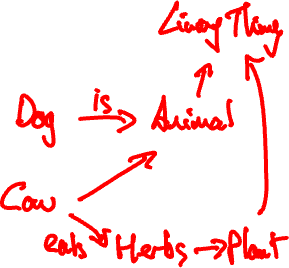 Living Thing
is
Dog Animal
Cow
eats Herbs Plant